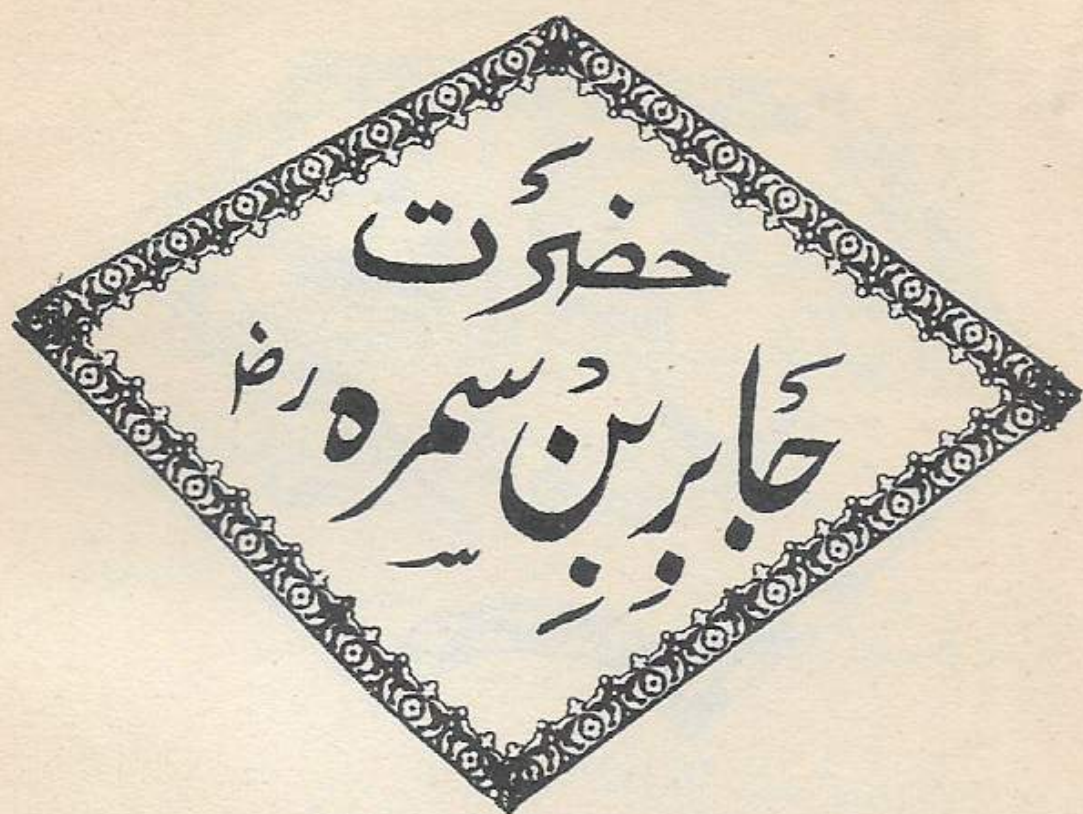 حضرَت
جَابر بِن سمرہ رض